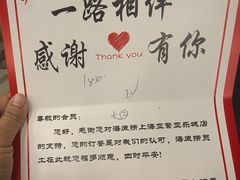 一路相伴
感谢 有你
Thank you
尊敬的会员：
您好，感谢您对海底捞上海亚繁亚乐城店
的支持，您的订餐是对我们的认可，海底捞员
工在此祝您福搂顺意，四时平安！